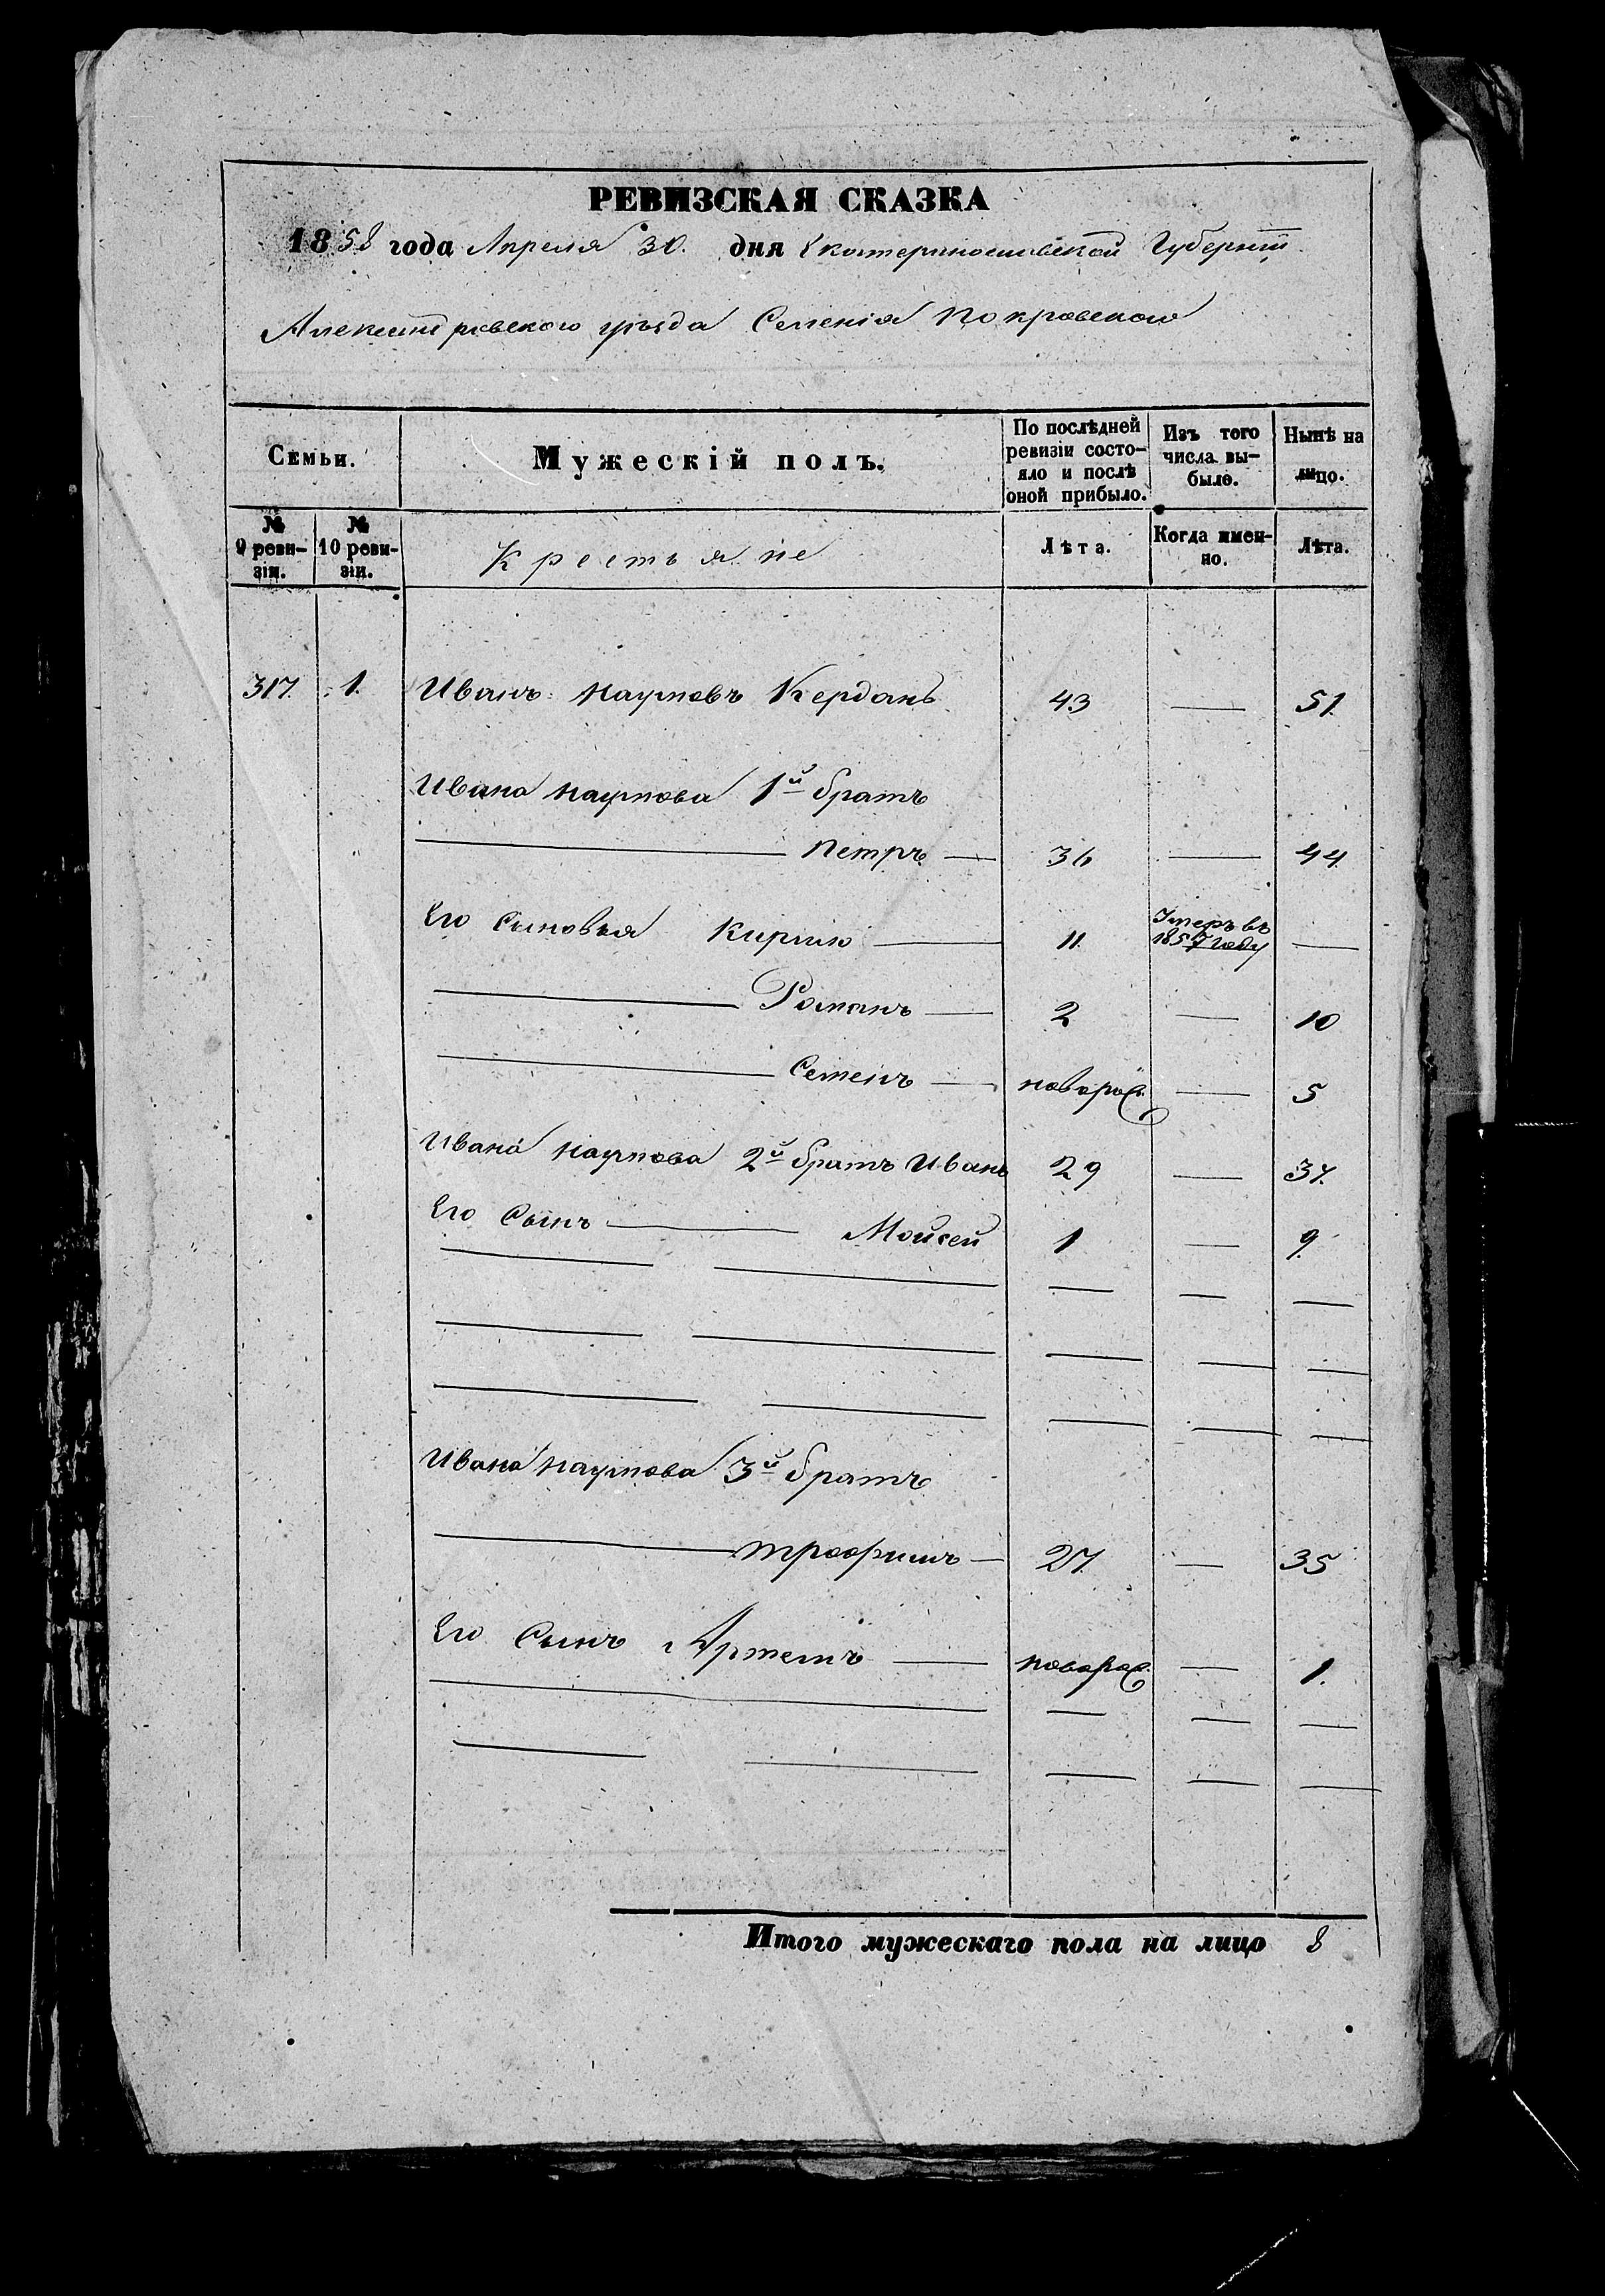 РЕВИЗСКАЯ СКАЗКА
1858 года Апреля 30. дня Екатеринославской Губерніи
Александровского уѣзда Селенія Покровского
Семьи.
Мужескій полъ.
По послѣдней ревизіи состо-
яло и послѣ
оной прибыло.
Изъ того
числа вы-
было.
Нынѣ на
лицо.
№
9 реви-
зіи.
№
10 реви-
зіи.
Крестьяне
Лѣта.
Когда имен-
но.
Лѣта.
317. 1. Иванъ Наумовъ Кердань 43 51.
Ивана Наумова 1й братъ
Петръ 36 44
Его Сыновья Кирило 11 Умеръ въ
1857 году
Романъ 2 10
Семенъ новорож. 5
Ивана Наумова 2й братъ Иванъ 29 37.
Его Сынъ Мойсей 1 9.
Ивана Наумова 3й братъ
Трофимъ 27. 35
Его Сынъ Артемъ новорож. 1.
Итого мужескаго пола на лицо 8